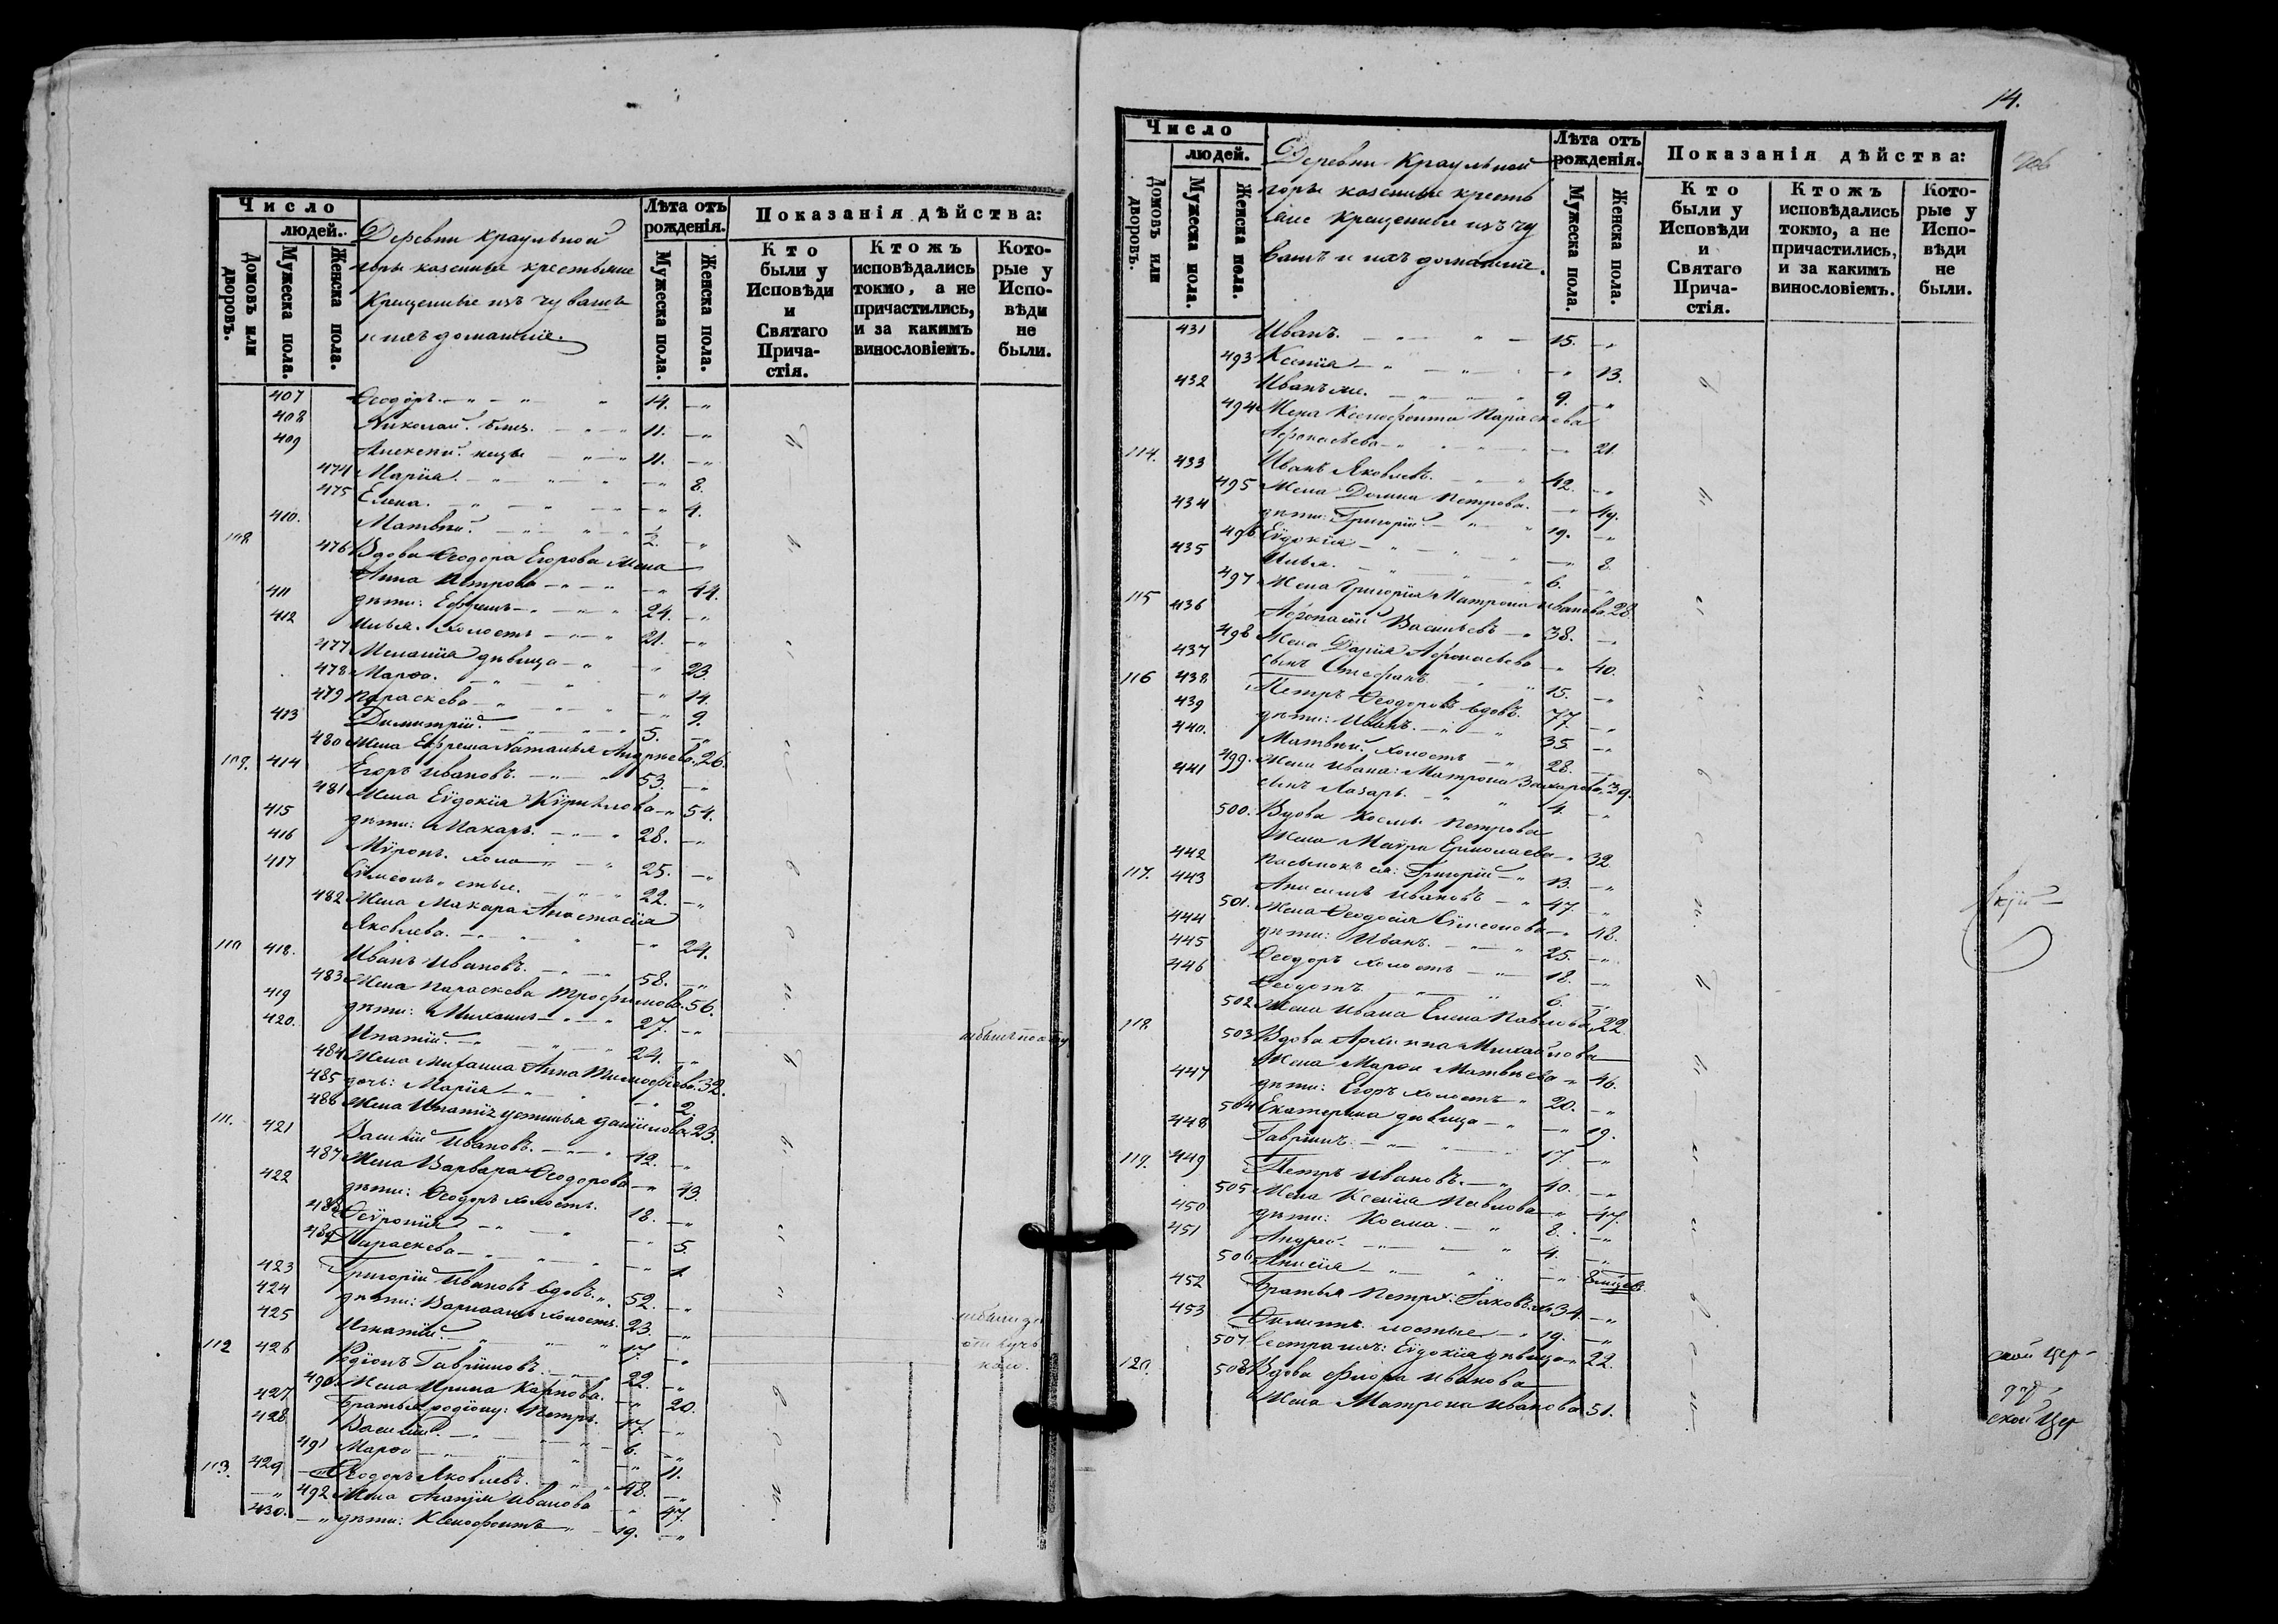 Число
людей.
Домовъ или дворовъ.
Мужеска пола.
Женска пола.
Деревни Краульной
горы казенные крестьяне
Крещенные изъ чувашъ
и ихъ домашніе.
Лѣта отъ рожденія.
Мужеска пола.
Женска пола.
Показанія дѣйства:
Кто были у Исповѣди и Святаго Прича-стія.
Ктожъ исповѣдались токмо, а не причастились, и за какимъ винословіемъ.
Кото-рые у Испо-вѣди не были.
407 Ѳеодоръ. 14.
408 Николай. близ. 11.
409 Алексей. нецы 11.
474 Марія. 8.
475 Елена. 4.
410. Матвѣй. ½.
108 476 Вдова Ѳеодора Егорова Жена
Анна Петрова 44.
411 дѣти: Ефремъ 24.
412 Илья. холостъ 21.
477 Меланія дѣвица 23.
478 Марѳа. 14.
479 Параскева 9.
413 Димитрій. 5.
480 Жена Ефрема Наталья Андреева 26.
109. 414 Егоръ Ивановъ. 53.
481 Жена Еѵдокія Кѵрилова 54.
415 дѣти: Макаръ. 28.
416 Мѵронъ. холо 25.
417 Сѵмеонъ. стые. 22.
482 Жена Макара Анастасія
Яковлева. 24.
110 418. Иванъ Ивановъ. 58.
483 Жена Параскева Трофимова. 56.
419 дѣти: Михаилъ 27.
420. Ипатій. 24.
484 Жена Михаила Анна Тимофѣева. 32.
485 дочь: Марія 2.
486 Жена Ипатія Устинья Данилова 23.
111. 421 Василій Ивановъ. 42.
487 Жена Варвара Ѳеодорова 43.
422 дѣти: Ѳеодоръ холостъ. 18.
488 Ѳеѵронія 5.
489 Параскева 1
423 Григорій Ивановъ вдовъ. 52.
424 дѣти: Варлаамъ холостъ. 23.
425 Игнатій. 17.
112 426 Родіонъ Гавриловъ. 22.
490 Жена Ирина Карпова. 20.
427 Братья Родіону: Петръ. 17.
428 Василій. 6.
491 Марѳа 11.
113. 429 Ѳеодоръ Яковлевъ. 48.
492 Жена Агапія Иванова 47.
430. дѣти: Ксенофонтъ 19.
14.
Число
людей.
Домовъ или дворовъ.
Мужеска пола.
Женска пола.
Деревни Краульной
горы казенные кресть
яне Крещенные изъ чу
вашъ и ихъ домашніе.
Лѣта отъ рожденія.
Мужеска пола.
Женска пола.
Показанія дѣйства:
Кто были у Исповѣди и Святаго Прича-стія.
Ктожъ исповѣдались токмо, а не причастились, и за какимъ винословіемъ.
Кото-рые у Испо-вѣди не были.
431 Иванъ. 15.
493 Ксенія 13.
432 Иванъ же. 9.
494 Жена Ксенофонта Параскева
Аѳонасьева 21.
114. 433 Иванъ Яковлевъ. 42.
495 Жена Домна Петрова. 49.
434 дѣти: Григорій 19.
496 Еѵдокія 8.
435 Илья. 6.
497 Жена Григорія Матрона Иванова 28
115 436 Аѳонасій Васильевъ 38.
498 Жена Дарія Аѳонасьева 40.
437 сынъ Стефанъ. 15.
116 438 Петръ Ѳеодоровъ вдовъ. 77.
439 дѣти: Иванъ. 35.
440. Матвѣй. холостъ 28.
499. Жена Ивана: Матрона Захарова 39.
441 сынъ Лазарь. 4.
500. Вдова Косьмы Петрова
Жена Маѵра Ермолаева 32
442 пасынокъ ея: Григорій 13.
117. 443 Анисимъ Ивановъ 47.
501. Жена Ѳеодосія Сѵмеонова 48.
444 дѣти: Иванъ. 25.
445 Ѳеодоръ холостъ 18.
446 Ѳеодотъ. 6.
502 Жена Ивана Елена Павлова 22.
118 503 Вдова Архипа Михайлова
Жена Марѳа Матвѣева 46.
447 дѣти: Егоръ холостъ 20.
504 Екатерина дѣвица 19.
448 Гавріилъ. 17.
119. 449 Петръ Ивановъ. 40.
505 Жена Ксенія Павлова 47.
450 дѣти: Косма. 8.
451 Андрей. 4.
506 Анисія
452 Братья Петра: Іаковъ. хо 34.
453 Филиппъ. лостые 19.
507 Сестра ихъ: Еѵдокія дѣвица 22.
120. 508 Вдова Флора Иванова
Жена Матрона Иванова 51.
ской Цер